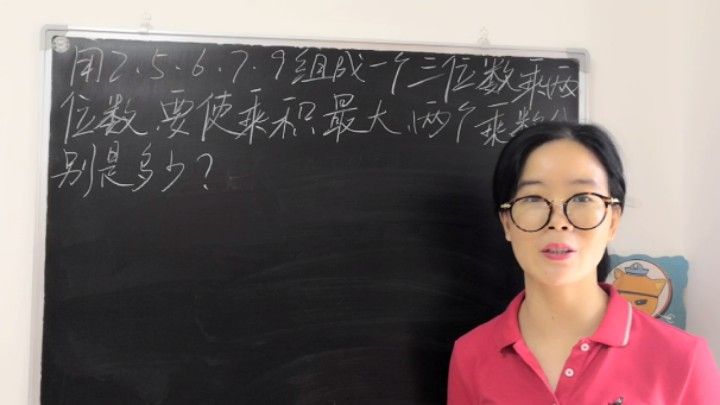 用2、5、6、7、9组成一个三位数乘两
位数,要使乘积最大,两个乘数分
别是多少?